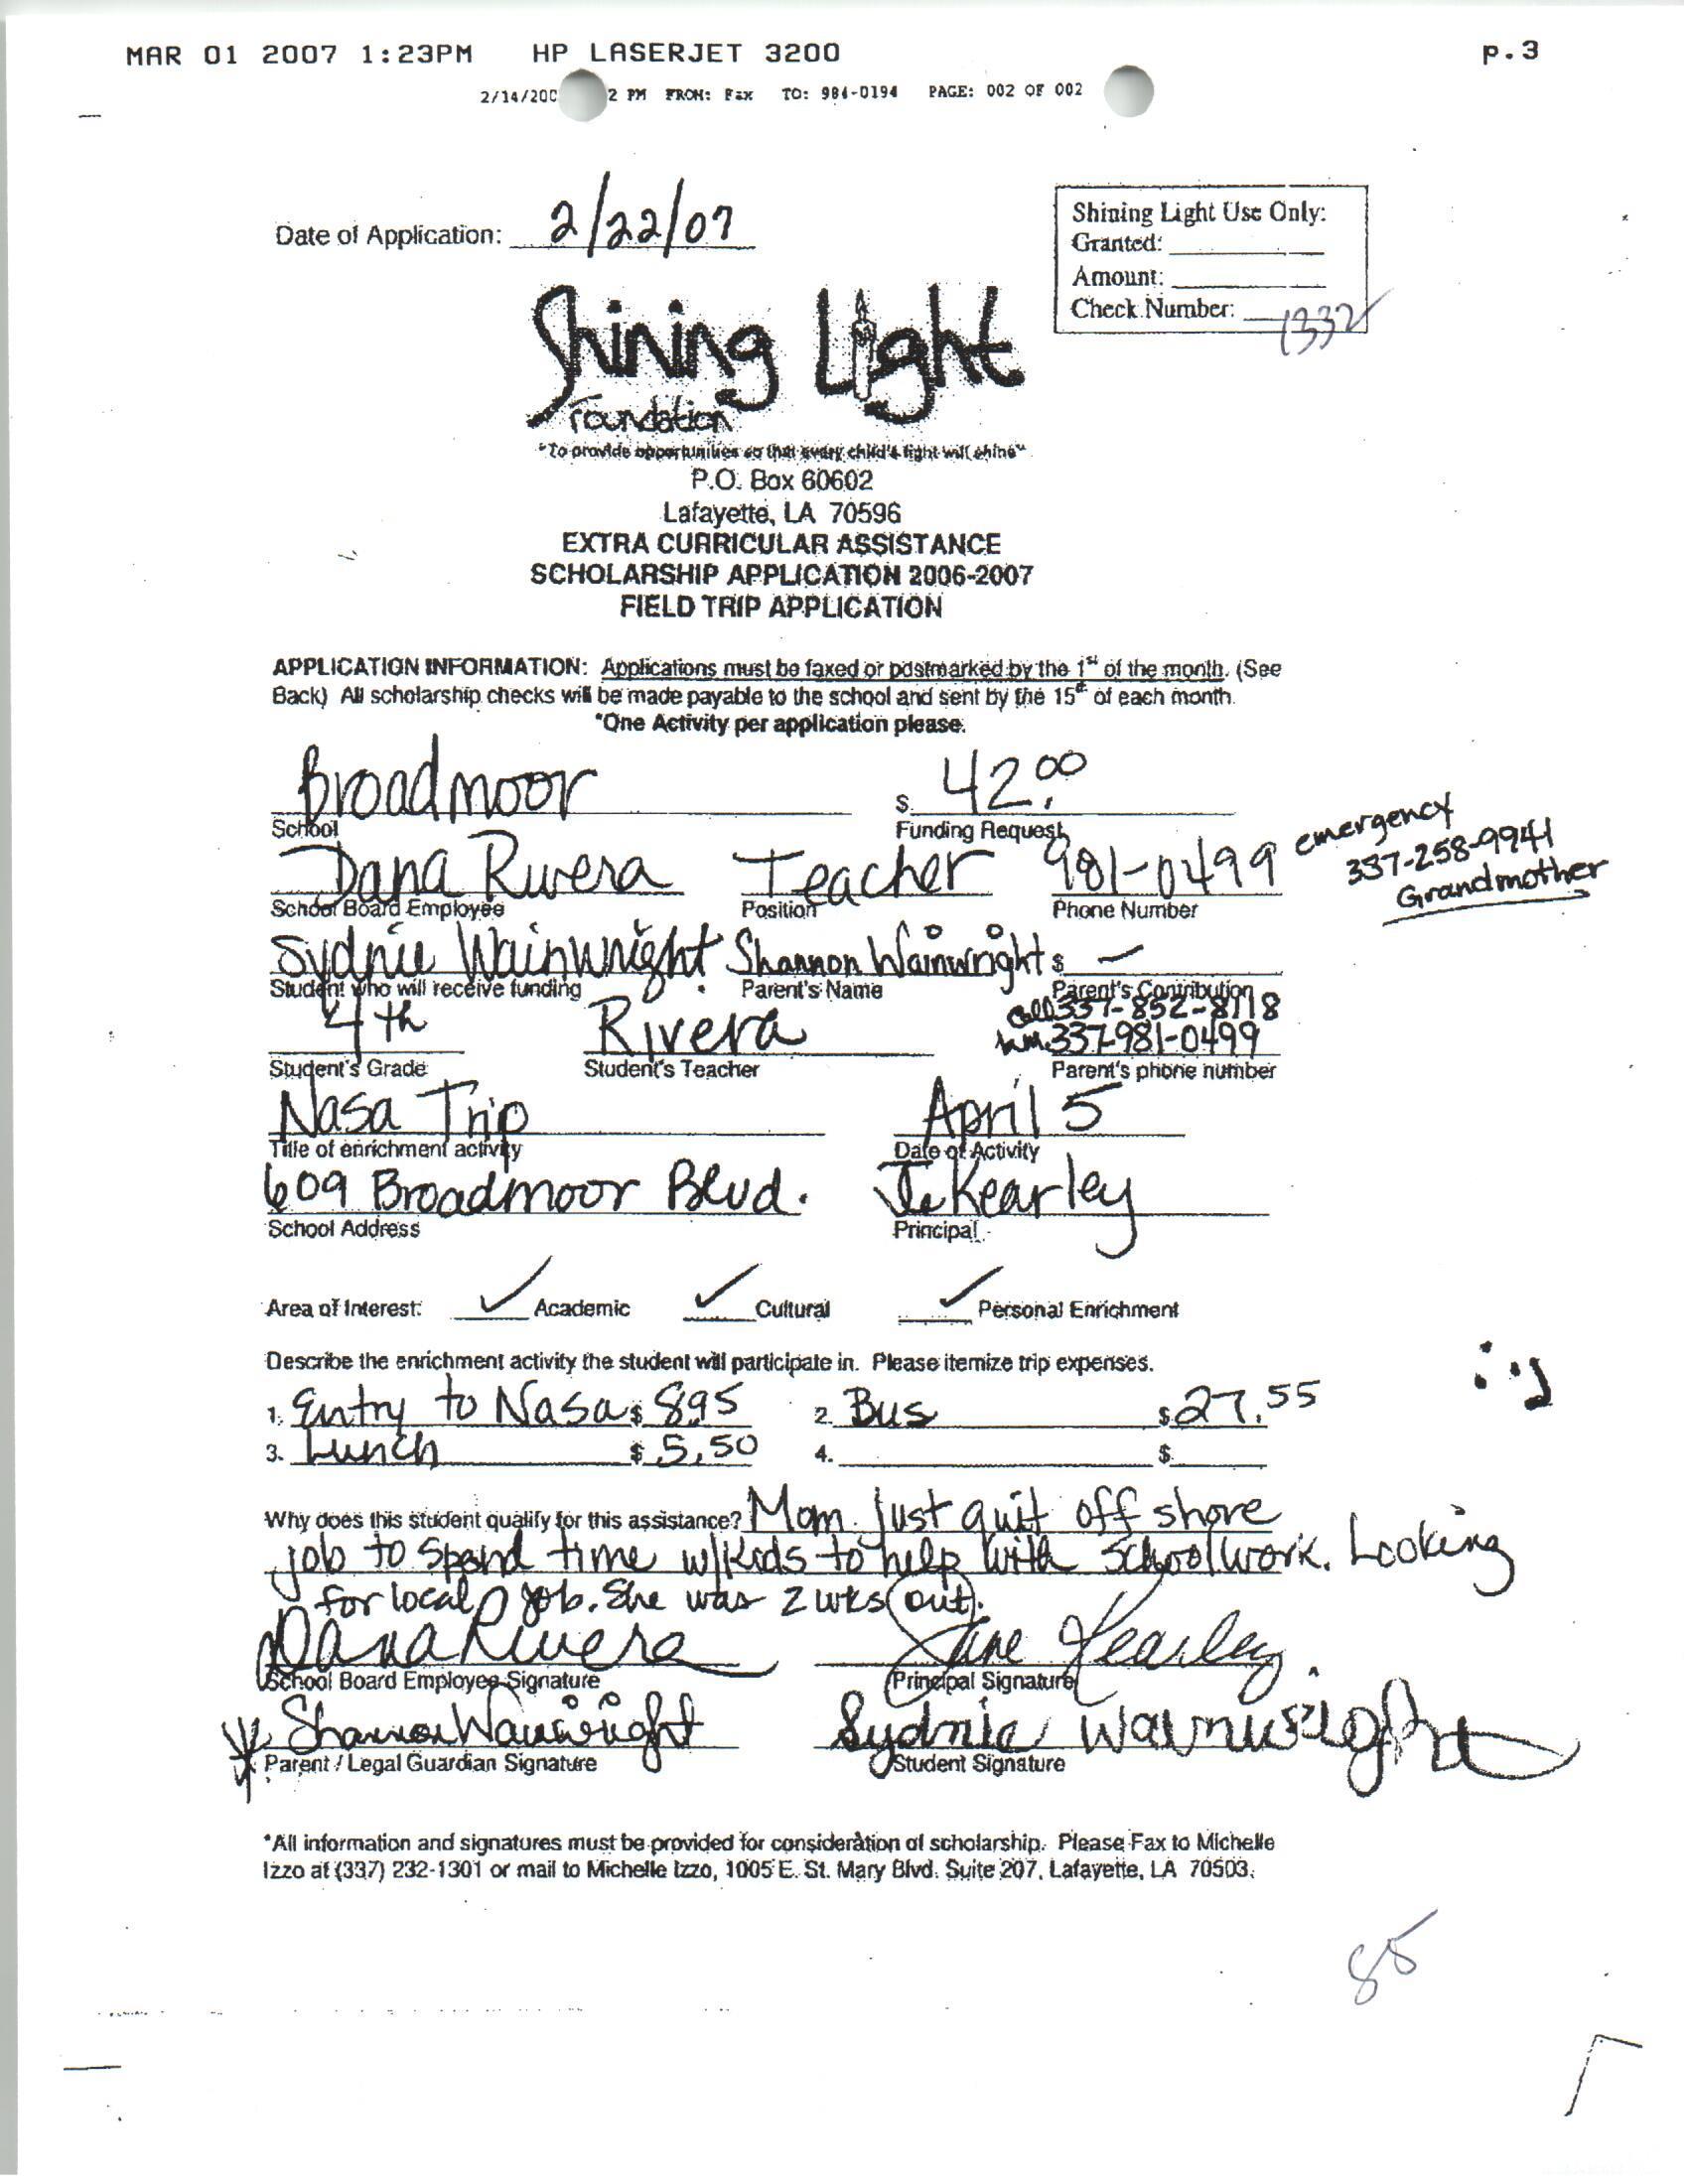 MAR 01 2007 1:23PM HP LASERJET 3200 p.3
2/14/200 2 PM FROM: Fax TO: 984-0194 PAGE: 002 OF 002
Date of Application: 2/22/07
Shining Light Use Only:
Granted:
Amount:
Check Number: 1332
Shining Light
Foundation
"To provide opportunities so that every child's light will shine"
P.O. Box 60602
Lafayette, LA 70596
EXTRA CURRICULAR ASSISTANCE
SCHOLARSHIP APPLICATION 2006-2007
FIELD TRIP APPLICATION
APPLICATION INFORMATION: Applications must be faxed or postmarked by the 1st of the month. (See
Back) All scholarship checks will be made payable to the school and sent by the 15th of each month.
*One Activity per application please.
Broadmoor $ 42.00
School Funding Request
emergency
337-258-9941
Grandmother
Dana Rivera Teacher 981-0499
School Board Employee Position Phone Number
Sydnie Wainwright Shannon Wainwright $ —
Student who will receive funding Parent's Name Parent's Contribution
cell 337-852-8118
4th Rivera hm. 337-981-0499
Student's Grade Student's Teacher Parent's phone number
Nasa Trip April 5
Title of enrichment activity Date of Activity
609 Broadmoor Blvd. J. Kearley
School Address Principal
Area of Interest: ✓ Academic ✓ Cultural ✓ Personal Enrichment
Describe the enrichment activity the student will participate in. Please itemize trip expenses.
1. Entry to Nasa $ 8.95 2. Bus $ 27.55
3. Lunch $ 5.50 4. $
Why does this student qualify for this assistance? Mom just quit off shore
job to spend time w/kids to help with schoolwork. Looking
for local job. She was 2 wks out.
Dana Rivera Jane Kearley
School Board Employee Signature Principal Signature
Shannon Wainwright Sydnie Wainwright
Parent / Legal Guardian Signature Student Signature
*All information and signatures must be provided for consideration of scholarship. Please Fax to Michelle
Izzo at (337) 232-1301 or mail to Michelle Izzo, 1005 E. St. Mary Blvd. Suite 207, Lafayette, LA 70503.
85